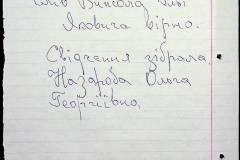 Яковича вірно.
Свідчення зібрала
Назарова Ольга
Георгіївна